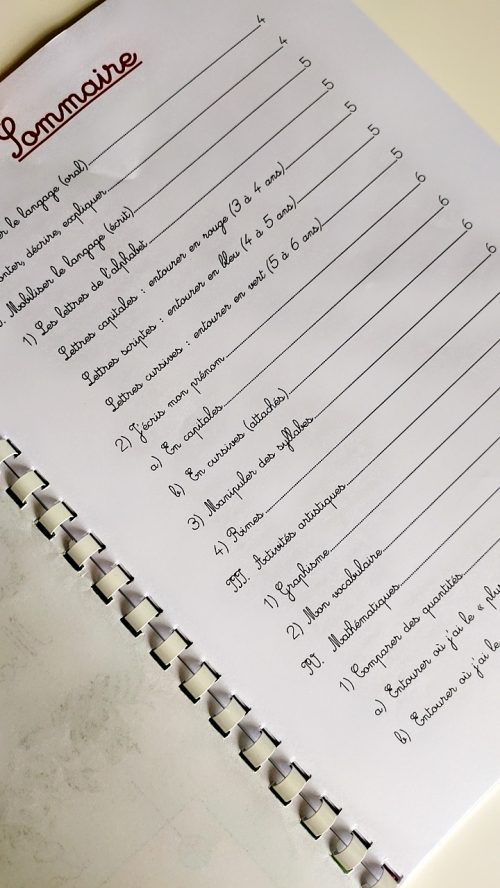 Sommaire
le langage (oral) 4
décrire, expliquer 4
Mobiliser le langage (écrit) 5
1) Les lettres de l'alphabet 5
Lettres capitales : entourer en rouge (3 à 4 ans) 5
Lettres scriptes : entourer en bleu (4 à 5 ans) 5
Lettres cursives : entourer en vert (5 à 6 ans) 5
2) J'écris mon prénom 6
a) En capitales 6
b) En cursives (attachés) 6
3) Manipuler des syllabes 6
4) Rimes
III. Activités artistiques
1) Graphisme
2) Mon vocabulaire
IV. Mathématiques
1) Comparer des quantités
a) Entourer où j'ai le « plu
b) Entourer où j'ai le